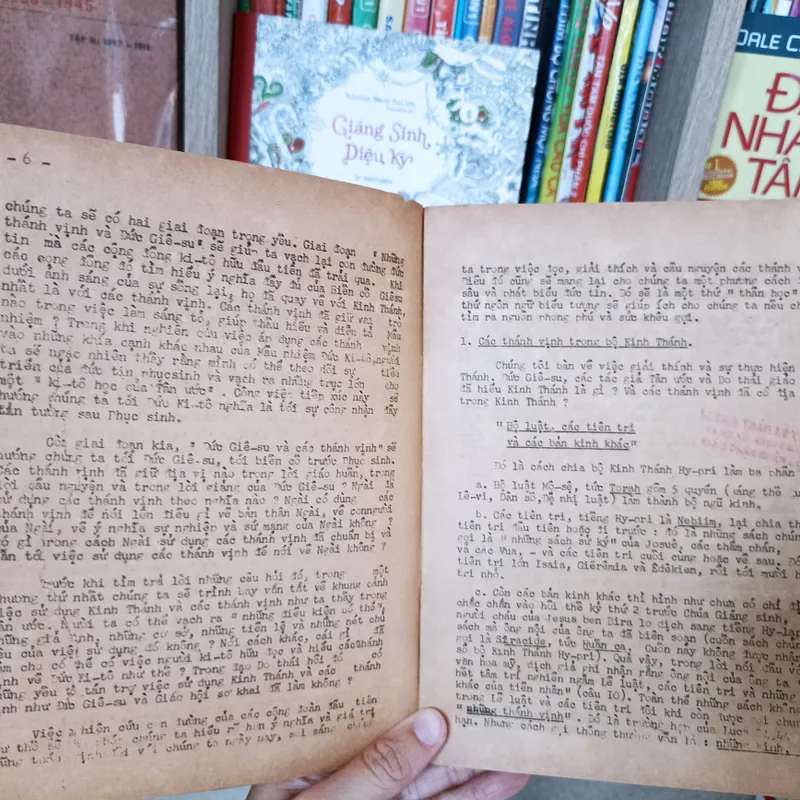 TẬP
Giáng Sinh
Diệu kỳ
DALE C
NHÂ
TÂM
- 6 -
chúng ta sẽ có hai giai đoạn trọng yếu. Giai đoạn "Những
thánh vịnh và Đức Giê-su" sẽ giúp ta vạch lại con đường đức
tin mà các cộng đồng ki-tô hữu đầu tiên đã trải qua. Khi
các cộng đồng đó tìm hiểu ý nghĩa đầy đủ của Biến cố Giêsu
dưới ánh sáng của sự sống lại, họ đã quay về với Kinh Thánh,
nhất là với các thánh vịnh. Các thánh vịnh đã giữ vai trò
nào trong việc làm sáng tỏ, giúp thấu hiểu và diễn tả Mầu
nhiệm ? Trong khi nghiên cứu việc áp dụng các thánh vịnh
vào những khía cạnh khác nhau của Mầu nhiệm Đức Ki-tô, người
ta sẽ ngạc nhiên thấy rằng mình có thể theo dõi sự tiến
triển của đức tin phục sinh và vạch ra những trục lớn cho
một " ki-tô học của Tân ước". Công việc tiên xúc này sẽ
hướng chúng ta tới Đức Ki-tô nghĩa là tới sự công nhận đầy
tin tưởng sau Phục sinh.
Còn giai đoạn kia, " Đức Giê-su và các thánh vịnh" sẽ
hướng chúng ta tới Đức Giê-su, tới biến cố trước Phục sinh.
Các thánh vịnh đã giữ địa vị nào trong lời giáo huấn, trong
lời cầu nguyện và trong lời giảng của Đức Giê-su ? Ngài đã
sử dụng các thánh vịnh theo nghĩa nào ? Ngài có dùng các
thánh vịnh để nói lên điều gì về bản thân Ngài, về con người
của Ngài, về ý nghĩa sự nghiệp và sứ mạng của Ngài không ?
Có gì trong cách Ngài sử dụng các thánh vịnh đã chuẩn bị và
dẫn tới việc sử dụng các thánh vịnh để nói về Ngài không ?
Trước khi tìm trả lời những câu hỏi đó, trong một
chương thứ nhất chúng ta sẽ trình bày vắn tắt về khung cảnh
việc sử dụng Kinh Thánh và các thánh vịnh như ta thấy trong
Tân ước. Người ta có thể vạch ra " những điều kiện có thể",
những giả định, những cơ sở, những tiền lệ và những nét chủ
yếu của việc sử dụng đó không ? Nói cách khác, cái gì đã
làm cho có thể có việc người ki-tô hữu đọc và hiểu các thánh
vịnh về Đức Ki-tô như thế ? Trong đạo Do thái hồi đó có
những yếu tố tán trợ việc sử dụng Kinh Thánh và các thánh
vịnh như Đức Giê-su và Giáo hội sơ khai đã làm không ?
Việc nghiên cứu con đường của các cộng đoàn đầu tiên
như thế sẽ giúp chúng ta hiểu rõ hơn ý nghĩa và giá trị
những thánh vịnh đối với chúng ta ngày nay, soi sáng
ta trong việc đọc, giải thích và cầu nguyện các thánh v
Điều đó cũng sẽ mang lại cho chúng ta một phương cách
sâu và phát biểu đức tin. Đó sẽ là một thứ " thần học"
thứ ngôn ngữ biểu tượng sẽ giúp ích cho chúng ta nếu ch
tìm ra nguồn phong phú và sức khêu gợi.
1. Các thánh vịnh trong bộ Kinh Thánh.
Chúng tôi bàn về việc giải thích và sự thực hiện
Thánh. Đức Giê-su, các tác giả Tân ước và Do thái giáo
đã hiểu Kinh Thánh là gì ? Và các thánh vịnh đã có địa
trong Kinh Thánh ?
" Bộ luật, các tiên tri
và các bản kinh khác"
Đó là cách chia bộ Kinh Thánh Hy-pri làm ba phần
a. Bộ luật Mô-sê, tức Torah gồm 5 quyển (sáng thế
Lê-vi, Dân số, Đệ nhị luật) làm thành bộ ngũ kinh.
b. Các tiên tri, tiếng Hy-pri là Nebiim, lại chia thà
tiên tri đầu tiên hoặc đi trước : đó là những sách chún
gọi là " những sách sử ký" của Josuê, các thẩm phán,
và các Vua, - và các tiên tri cuối cùng hoặc về sau. Đó
tiên tri lớn Isaia, Giêrêmia và Êdêkien, rồi tới mười h
tri nhỏ.
c. Còn các bản kinh khác thì hình như chưa có chỉ đị
chắc chắn vào hồi thế kỷ thứ 2 trước Chúa Giáng sinh.
người cháu của Jesus ben Dira lo dịch sang tiếng Hy-lạp
sách mà ông nội của ông ta đã biên soạn (cuốn sách chún
gọi là Siracide, tức Huấn ca. Cuốn này không được nhận
sổ bộ Kinh Thánh Hy-pri). Quả vậy, trong lời nói đầu v
văn hoa mỹ, dịch giả ghi nhận rằng ông nội của ông ta
hết tâm trí nghiên ngẫm Lề luật, các tiên tri và những
khác của tiền nhân" (câu 10). Toàn thể những sách không
trong Lề luật và các tiên tri đôi khi còn được gọi chun
" những thánh vịnh" . Đó là trường hợp của Luca 24,44
hạn. Nhưng cách gọi thông thường vẫn là : những kinh,